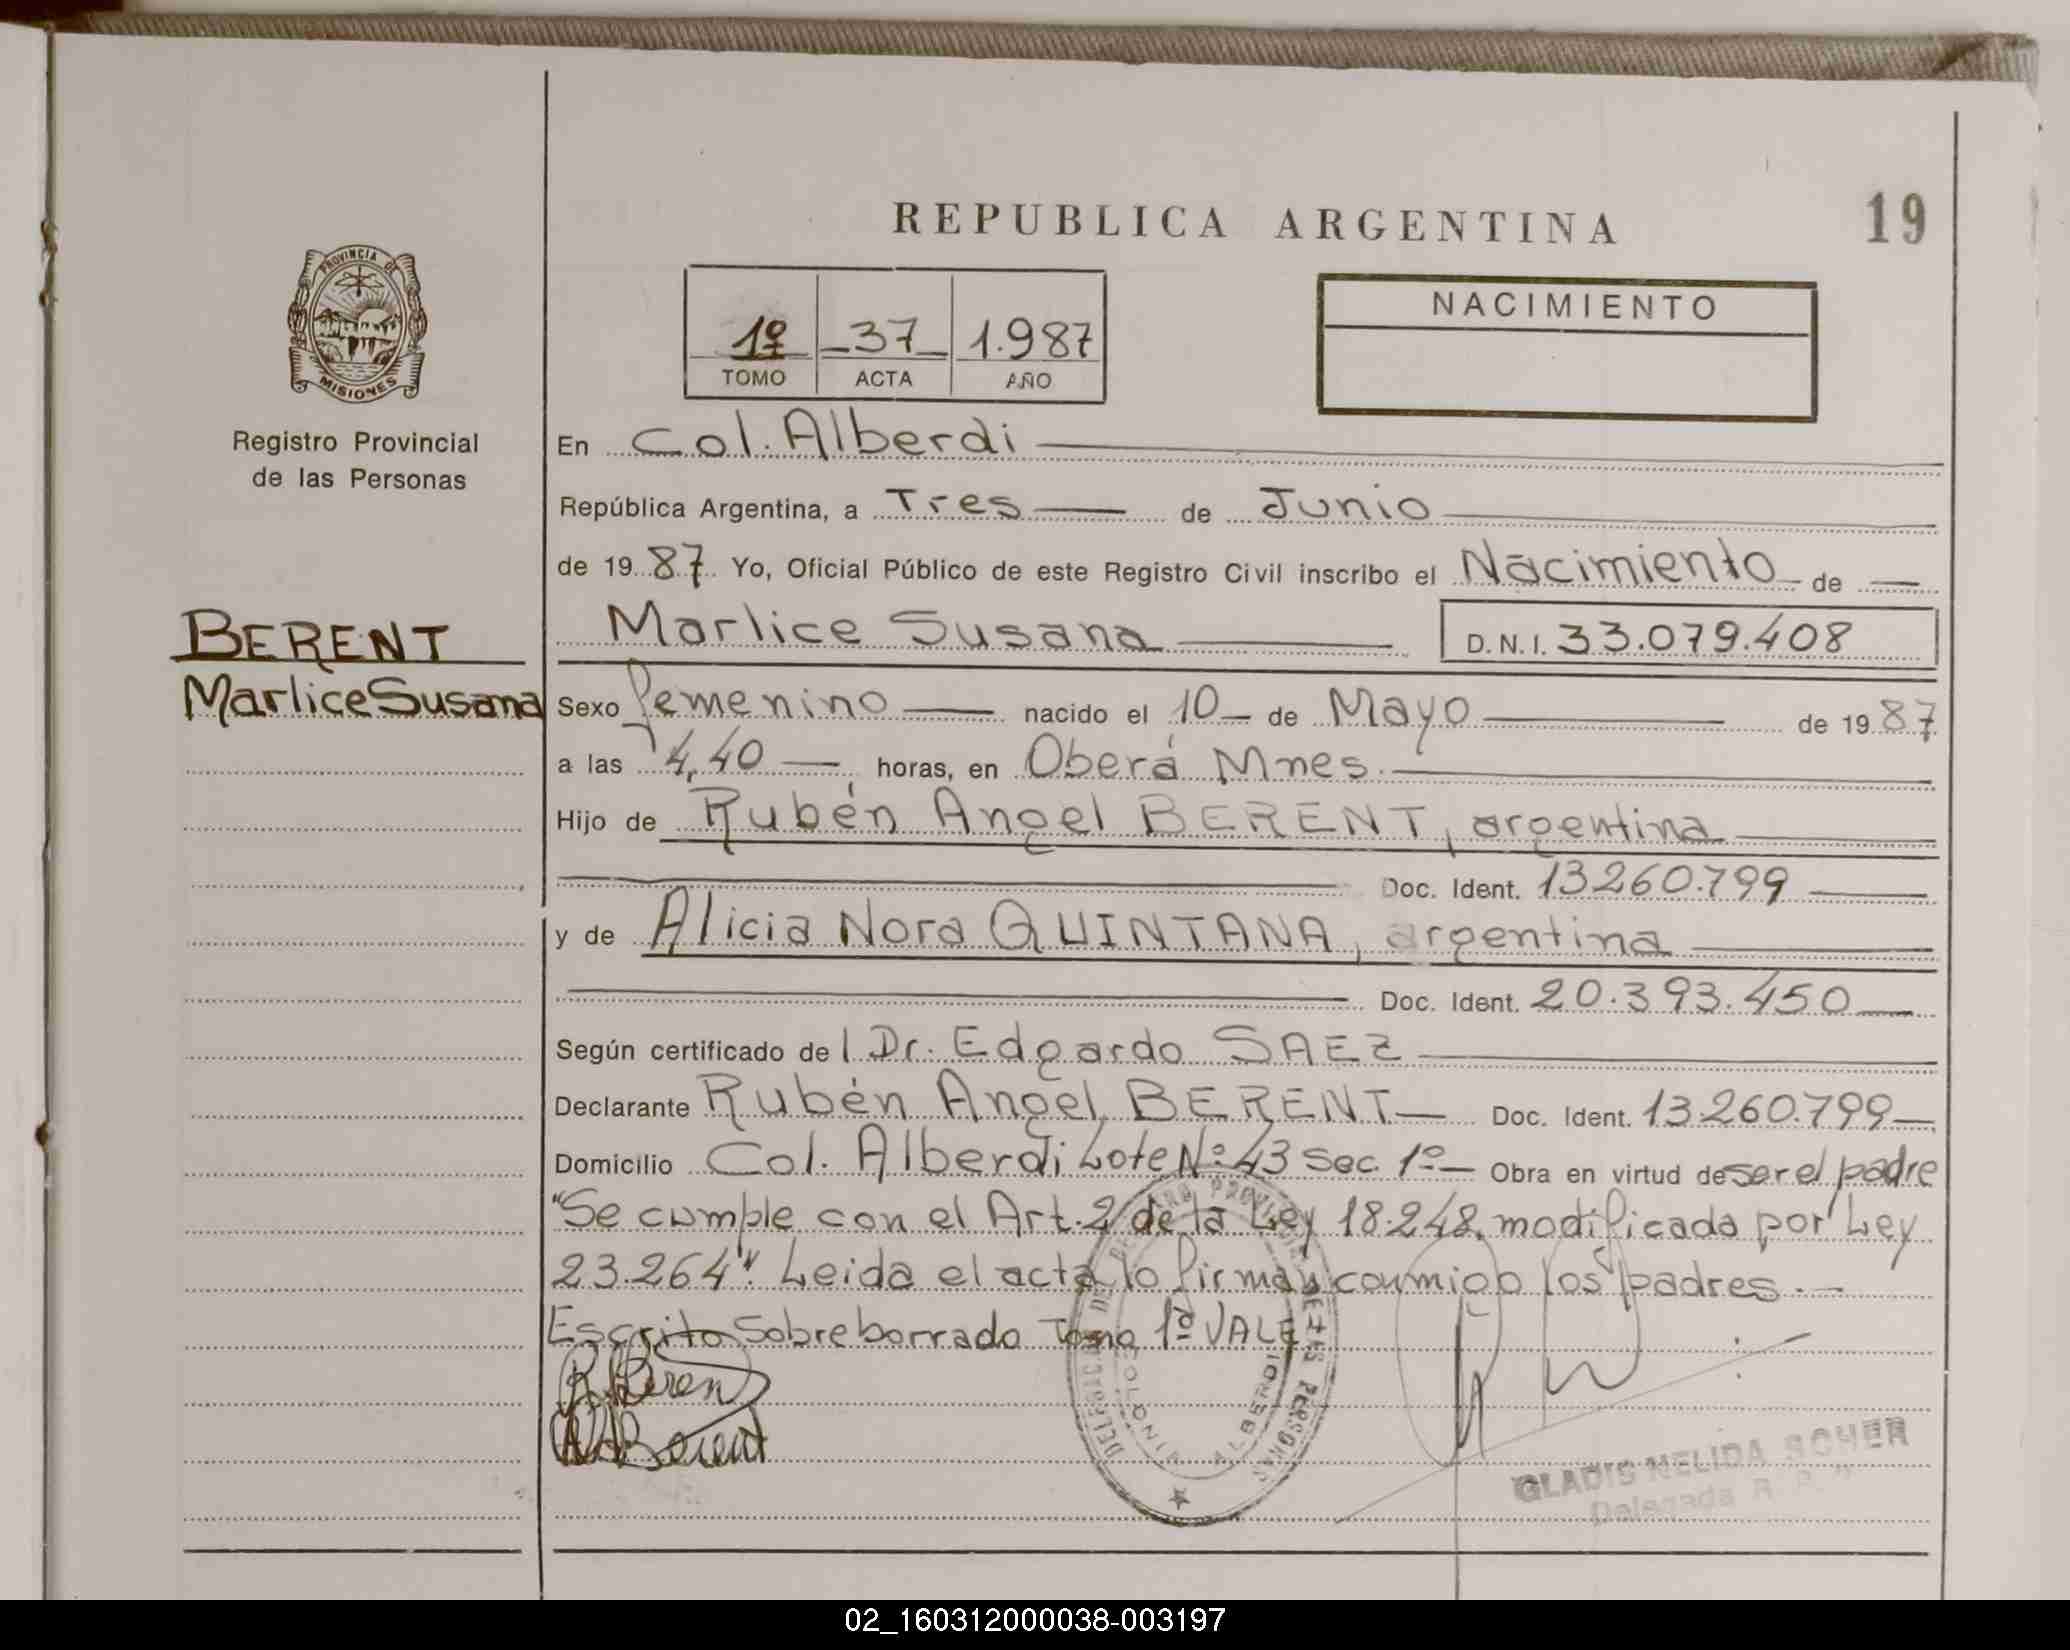 REPUBLICA ARGENTINA
19
PROVINCIA DE
MISIONES
Registro Provincial
de las Personas
1º 37 1.987
TOMO ACTA AÑO
NACIMIENTO
BERENT
Marlice Susana
En Col. Alberdi
República Argentina, a Tres de Junio
de 19 87 Yo, Oficial Público de este Registro Civil inscribo el Nacimiento de
Marlice Susana D.N.I. 33.079.408
Sexo femenino nacido el 10 de Mayo de 19 87
a las 4,40 horas, en Oberá Mnes.
Hijo de Rubén Angel BERENT, argentina
Doc. Ident. 13260.799
y de Alicia Nora QUINTANA, argentina
Doc. Ident. 20.393.450
Según certificado del Dr. Edgardo SAEZ
Declarante Rubén Angel BERENT Doc. Ident. 13.260.799
Domicilio Col. Alberdi Lote Nº 43 Sec. 1º Obra en virtud de ser el padre
"Se cumple con el Art. 2 de la Ley 18.248, modificada por Ley
23.264". Leida el acta lo firman conmigo los padres.
Escrito Sobreborrado Tomo 1º VALE
R. Berent
Berent
COLONIA ALBERDI
GLADIS NELIDA SCHER
Delegada R. P.
02_160312000038-003197